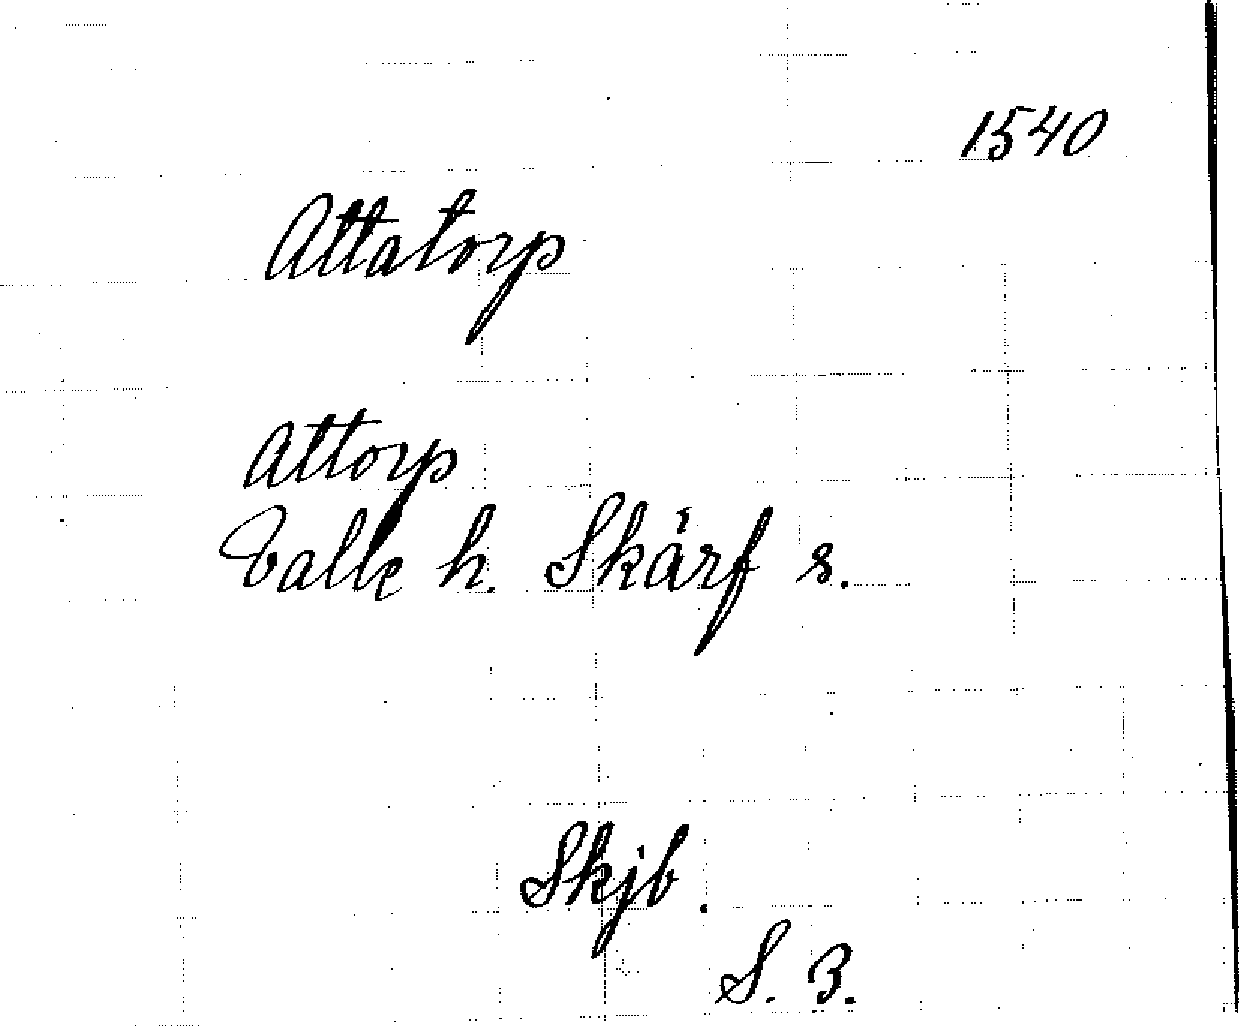 1540
Attatorp
Attorp
Valle h. Skärf s.
Skjb.
S. 3.